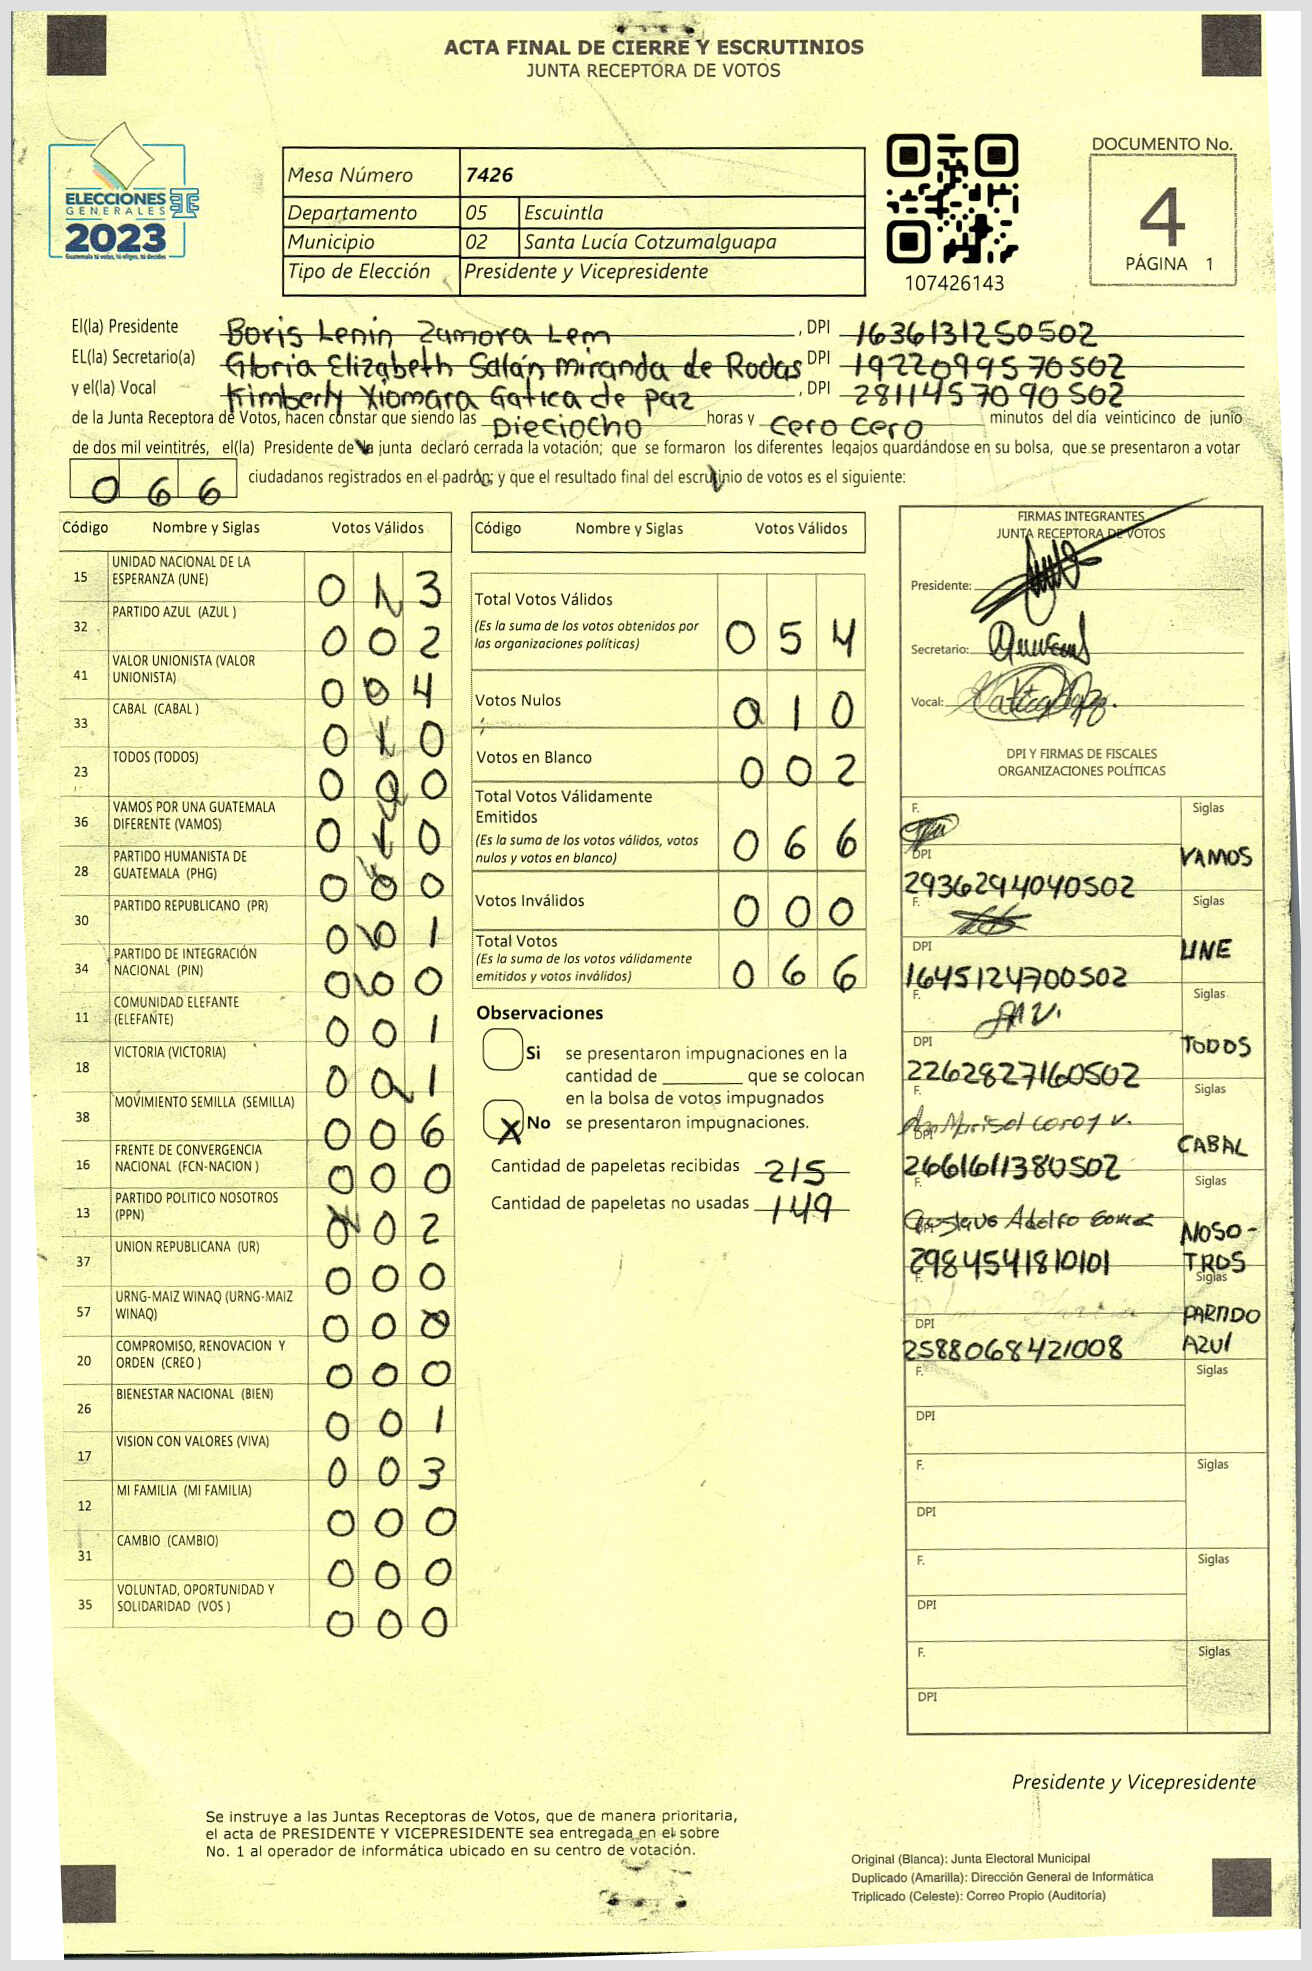 ACTA FINAL DE CIERRE Y ESCRUTINIOS
JUNTA RECEPTORA DE VOTOS
ELECCIONES
GENERALES
2023
Guatemala tú votas, tú eliges, tú decides
Mesa Número 7426
Departamento 05 Escuintla
Municipio 02 Santa Lucía Cotzumalguapa
Tipo de Elección Presidente y Vicepresidente
107426143
DOCUMENTO No.
4
PÁGINA 1
El(la) Presidente Boris Lenin Zamora Lem, DPI 1636131250502
EL(la) Secretario(a) Gloria Elizabeth Salán Miranda de Rodas DPI 1922099570502
y el(la) Vocal Kimberly Xiomara Gatica de Paz, DPI 2811457090502
de la Junta Receptora de Votos, hacen constar que siendo las Dieciocho horas y cero cero minutos del día veinticinco de junio
de dos mil veintitrés, el(la) Presidente de la junta declaró cerrada la votación; que se formaron los diferentes legajos guardándose en su bolsa, que se presentaron a votar
066 ciudadanos registrados en el padrón; y que el resultado final del escrutinio de votos es el siguiente:
Código Nombre y Siglas Votos Válidos
15 UNIDAD NACIONAL DE LA ESPERANZA (UNE) 013
32 PARTIDO AZUL (AZUL ) 002
41 VALOR UNIONISTA (VALOR UNIONISTA) 004
33 CABAL (CABAL ) 010
23 TODOS (TODOS) 000
36 VAMOS POR UNA GUATEMALA DIFERENTE (VAMOS) 010
28 PARTIDO HUMANISTA DE GUATEMALA (PHG) 000
30 PARTIDO REPUBLICANO (PR) 001
34 PARTIDO DE INTEGRACIÓN NACIONAL (PIN) 000
11 COMUNIDAD ELEFANTE (ELEFANTE) 001
18 VICTORIA (VICTORIA) 001
38 MOVIMIENTO SEMILLA (SEMILLA) 006
16 FRENTE DE CONVERGENCIA NACIONAL (FCN-NACION ) 000
13 PARTIDO POLITICO NOSOTROS (PPN) 002
37 UNION REPUBLICANA (UR) 000
57 URNG-MAIZ WINAQ (URNG-MAIZ WINAQ) 000
20 COMPROMISO, RENOVACION Y ORDEN (CREO ) 000
26 BIENESTAR NACIONAL (BIEN) 001
17 VISION CON VALORES (VIVA) 003
12 MI FAMILIA (MI FAMILIA) 000
31 CAMBIO (CAMBIO) 000
35 VOLUNTAD, OPORTUNIDAD Y SOLIDARIDAD (VOS ) 000
Código Nombre y Siglas Votos Válidos
Total Votos Válidos
(Es la suma de los votos obtenidos por
las organizaciones políticas) 054
Votos Nulos 010
Votos en Blanco 002
Total Votos Válidamente
Emitidos
(Es la suma de los votos válidos, votos
nulos y votos en blanco) 066
Votos Inválidos 000
Total Votos
(Es la suma de los votos válidamente
emitidos y votos inválidos) 066
Observaciones
Si se presentaron impugnaciones en la
cantidad de ________ que se colocan
en la bolsa de votos impugnados
X No se presentaron impugnaciones.
Cantidad de papeletas recibidas 215
Cantidad de papeletas no usadas 149
FIRMAS INTEGRANTES
JUNTA RECEPTORA DE VOTOS
Presidente:
Secretario:
Vocal:
DPI Y FIRMAS DE FISCALES
ORGANIZACIONES POLÍTICAS
F. Siglas
DPI VAMOS
2936294040502
F. Siglas
DPI UNE
1645124700502
F. Siglas
DPI TODOS
2262827160502
F. Siglas
DPI CABAL
2661611380502
F. Siglas
Gustavo Adolfo Gomez NOSO-
2984541810101 TROS
F. Siglas
DPI PARTIDO
2588068421008 AZUL
F. Siglas
DPI
F. Siglas
DPI
F. Siglas
DPI
F. Siglas
DPI
Presidente y Vicepresidente
Se instruye a las Juntas Receptoras de Votos, que de manera prioritaria,
el acta de PRESIDENTE Y VICEPRESIDENTE sea entregada en el sobre
No. 1 al operador de informática ubicado en su centro de votación.
Original (Blanca): Junta Electoral Municipal
Duplicado (Amarilla): Dirección General de Informática
Triplicado (Celeste): Correo Propio (Auditoría)